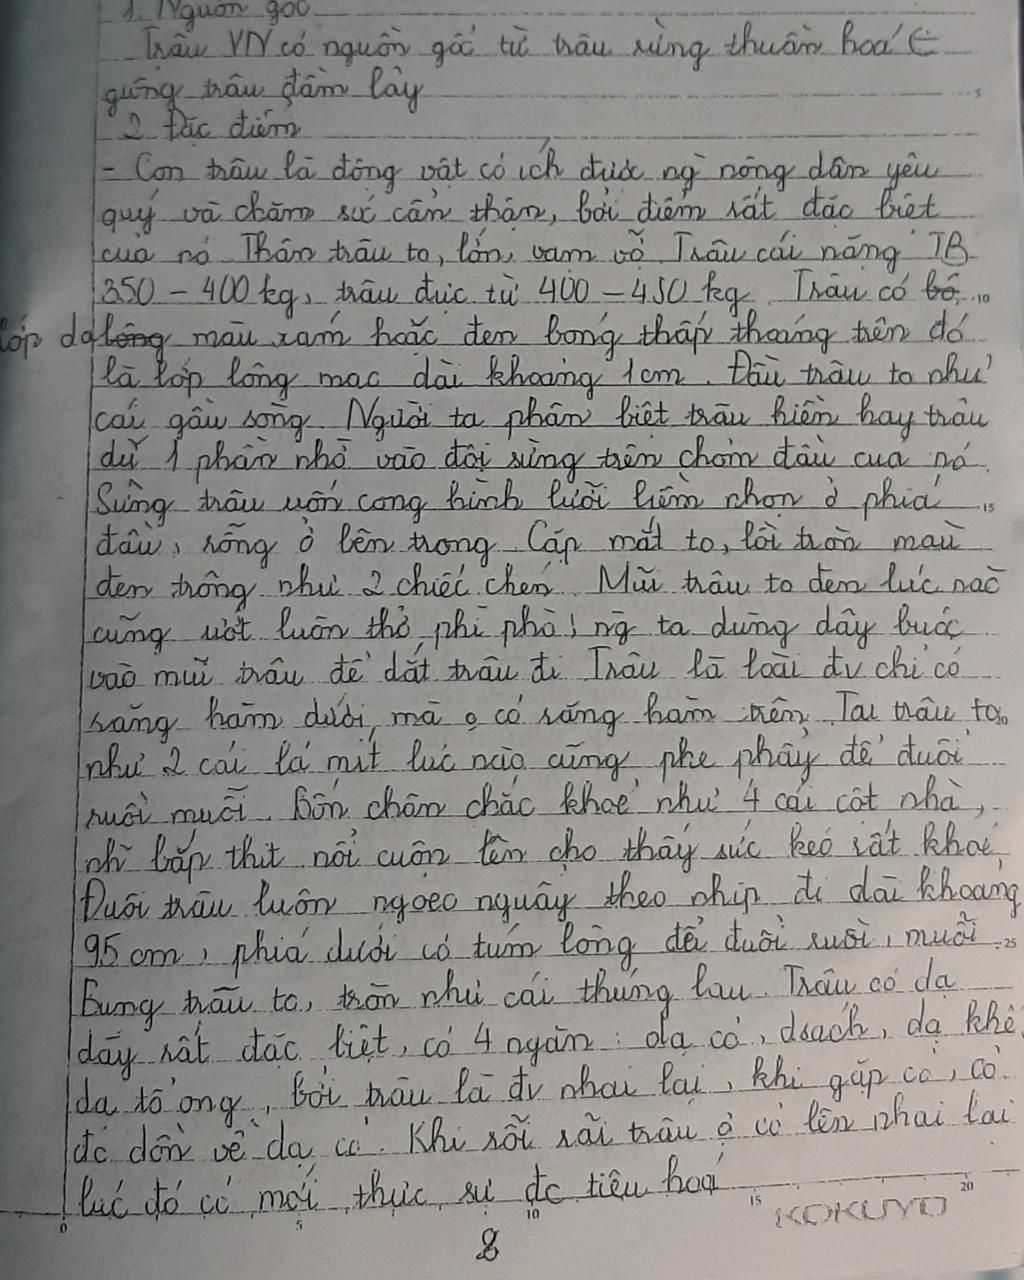 1. Nguồn gốc
Trâu VN có nguồn gốc từ trâu rừng thuần hoá ∈
giống trâu đầm lầy
5
2. Đặc điểm
- Con trâu là động vật có ích được ng` nông dân yêu
quý và chăm sóc cẩn thận, bởi điểm rất đặc biệt
của nó. Thân trâu to, lớn, vạm vỡ. Trâu cái nặng TB
350 - 400 kg, trâu đực từ 400 - 450 kg. Trâu có bộ 10
lớp da lông màu xám hoặc đen bóng thấp thoáng trên đó
là lớp lông mọc dài khoảng 1cm. Đầu trâu to như
cái gầu sòng. Người ta phân biệt trâu hiền hay trâu
dữ 1 phần nhờ vào đôi sừng trên chỏm đầu của nó.
Sừng trâu uốn cong hình lưỡi liềm nhọn ở phía 15
đầu, rỗng ở bên trong. Cặp mắt to, lồi tròn màu
đen trông như 2 chiếc chén. Mũi trâu to đen lúc nào
cũng ướt luôn thở phì phò, ng ta dùng dây buộc
vào mũi trâu để dắt trâu đi. Trâu là loài đv chỉ có
răng hàm dưới, mà o có răng hàm trên. Tai trâu to 20
như 2 cái lá mít lúc nào cũng phe phẩy để đuổi
ruồi muỗi. Bốn chân chắc khoẻ như 4 cái cột nhà,
nh~ bắp thịt nổi cuộn lên cho thấy sức kéo rất khoẻ,
Đuôi trâu luôn ngoeo nguẩy theo nhịp đi dài khoảng
95 cm, phía dưới có túm lông để đuổi ruồi, muỗi. 25
Bụng trâu to, tròn như cái thúng lau. Trâu có dạ
dày rất đặc biệt, có 4 ngăn: dạ cỏ, dsách, dạ khế
dạ tổ ong, bởi trâu là đv nhai lại, khi gặp cỏ, cỏ
đc dồn về dạ cỏ. Khi rỗi rãi trâu ợ cỏ lên nhai lại
lúc đó cỏ mới thực sự đc tiêu hoá
0 5 10 15 20
KOKUYO
8